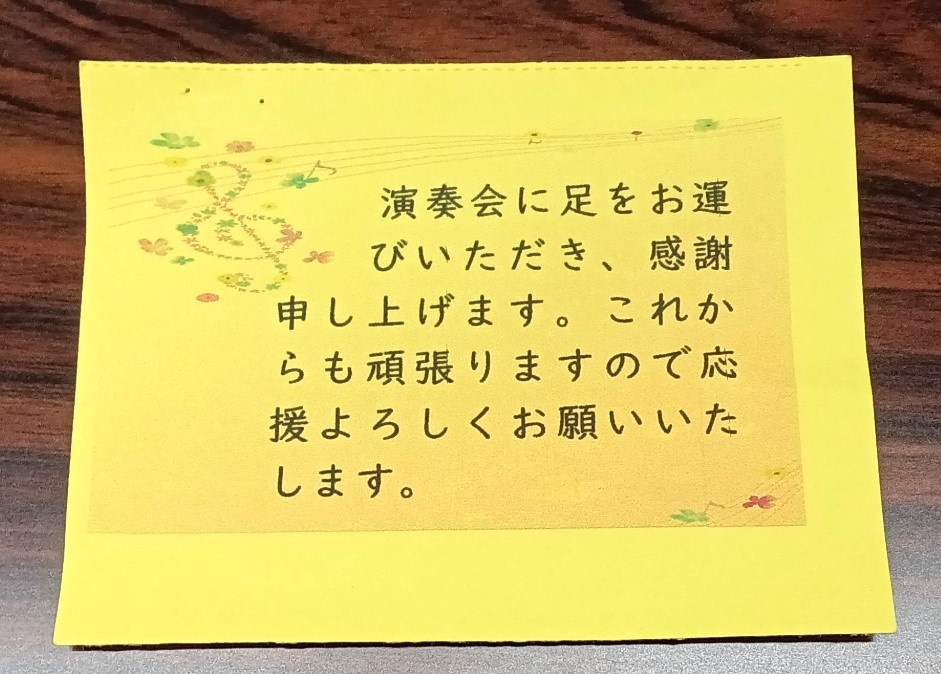 演奏会に足をお運
びいただき、感謝
申し上げます。これか
らも頑張りますので応
援よろしくお願いいた
します。